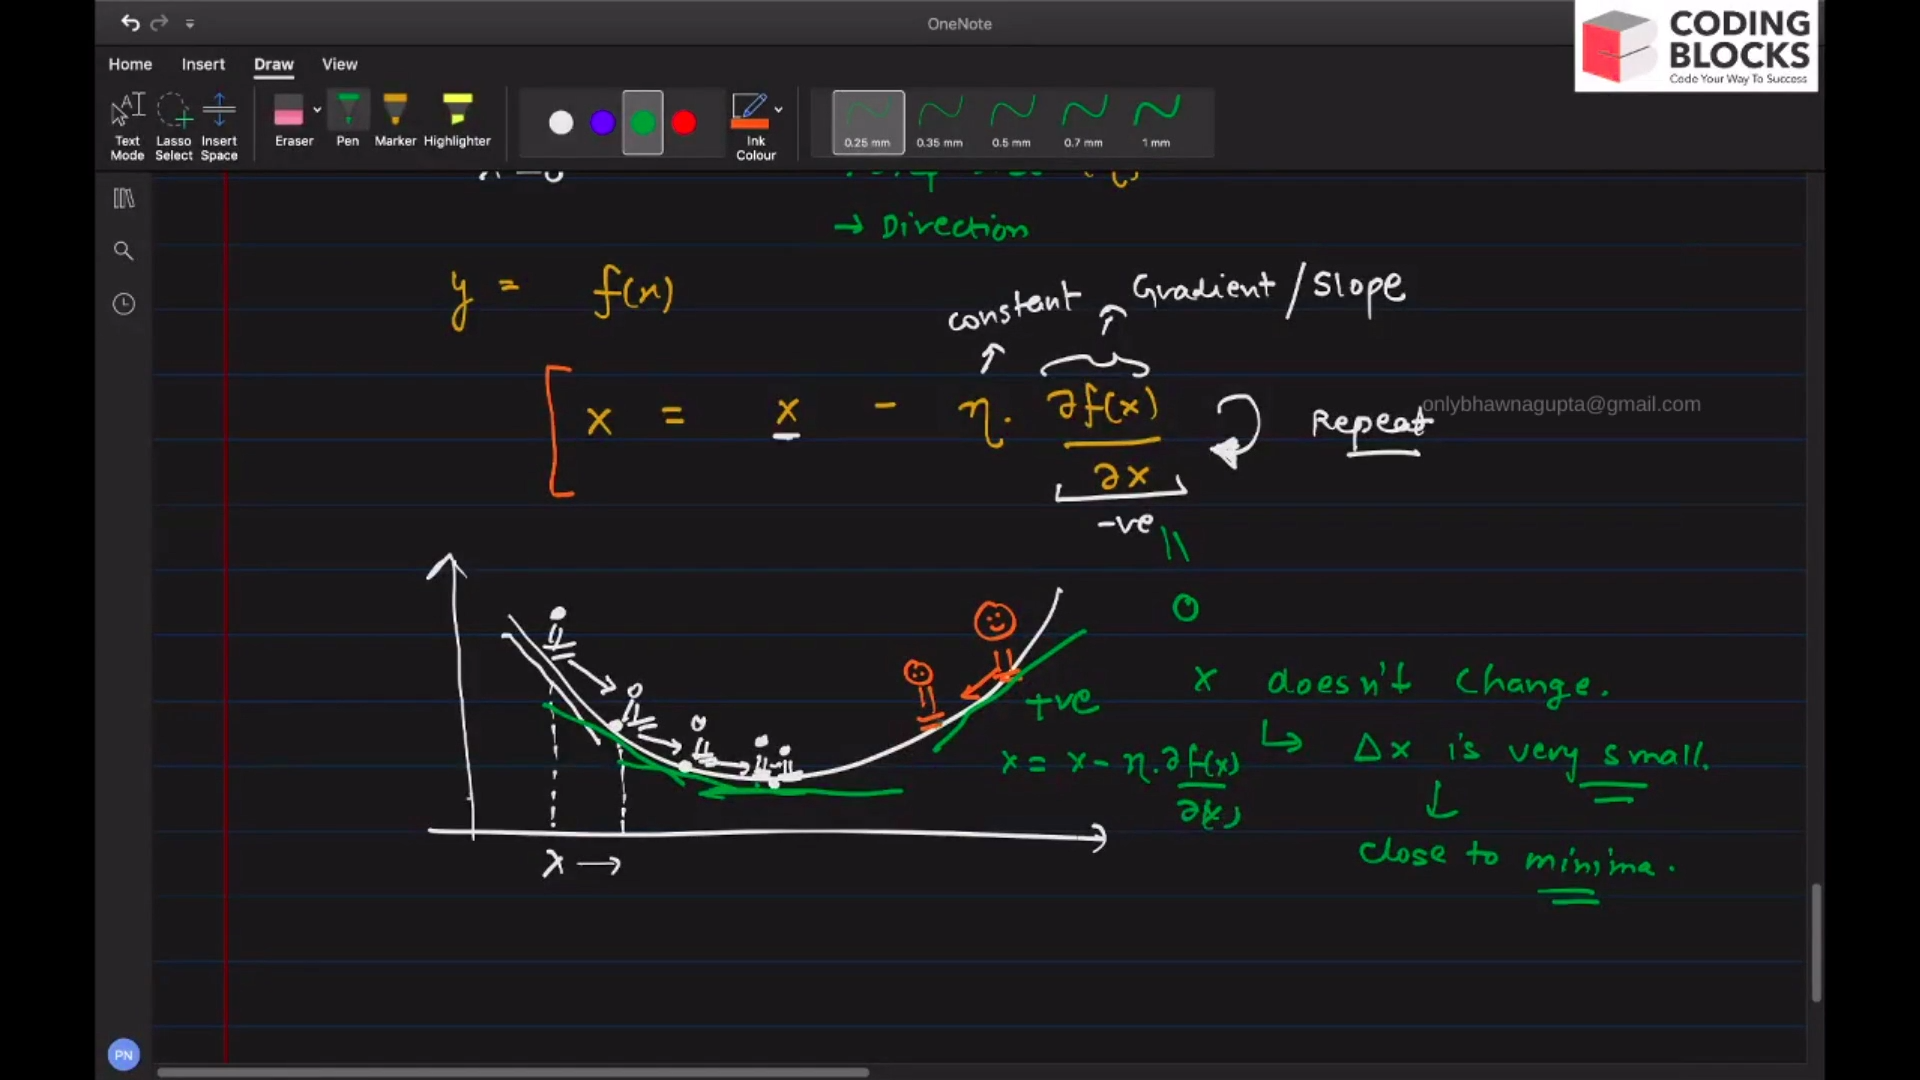 OneNote
CODING
BLOCKS
Code Your Way To Success
Home Insert Draw View
Text Mode
Lasso Select
Insert Space
Eraser
Pen
Marker
Highlighter
Ink Colour
0.25 mm
0.35 mm
0.5 mm
0.7 mm
1 mm
→ Direction
y = f(x)
constant
Gradient / Slope
x = x - η. ∂f(x)
∂x
Repeat
onlybhawnagupta@gmail.com
-ve
0
+ve
x doesn't change.
x = x - η. ∂f(x)
∂x
↳ Δx is very small.
↓
close to minima.
x →
PN